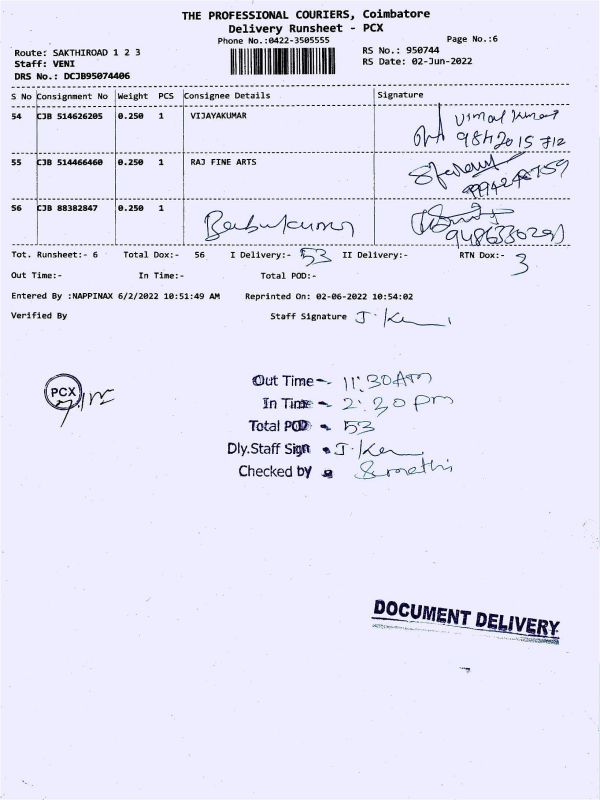 THE PROFESSIONAL COURIERS, Coimbatore
Delivery Runsheet - PCX
Phone No.:0422-3505555
Page No.:6
Route: SAKTHIROAD 1 2 3
RS No.: 950744
Staff: VENI
RS Date: 02-Jun-2022
DRS No.: DCJB95074406
S No Consignment No Weight PCS Consignee Details Signature
54 CJB 514626205 0.250 1 VIJAYAKUMAR
55 CJB 514466460 0.250 1 RAJ FINE ARTS
56 CJB 88382847 0.250 1 Babukumar
Tot. Runsheet:- 6 Total Dox:- 56 I Delivery:- 53 II Delivery:- RTN Dox:- 3
Out Time:- In Time:- Total POD:-
Entered By :NAPPINAX 6/2/2022 10:51:49 AM Reprinted On: 02-06-2022 10:54:02
Verified By Staff Signature
PCX
Out Time - 11:30AM
In Time - 2:30 pm
Total POD - 53
Dly.Staff Sign
Checked by
DOCUMENT DELIVERY